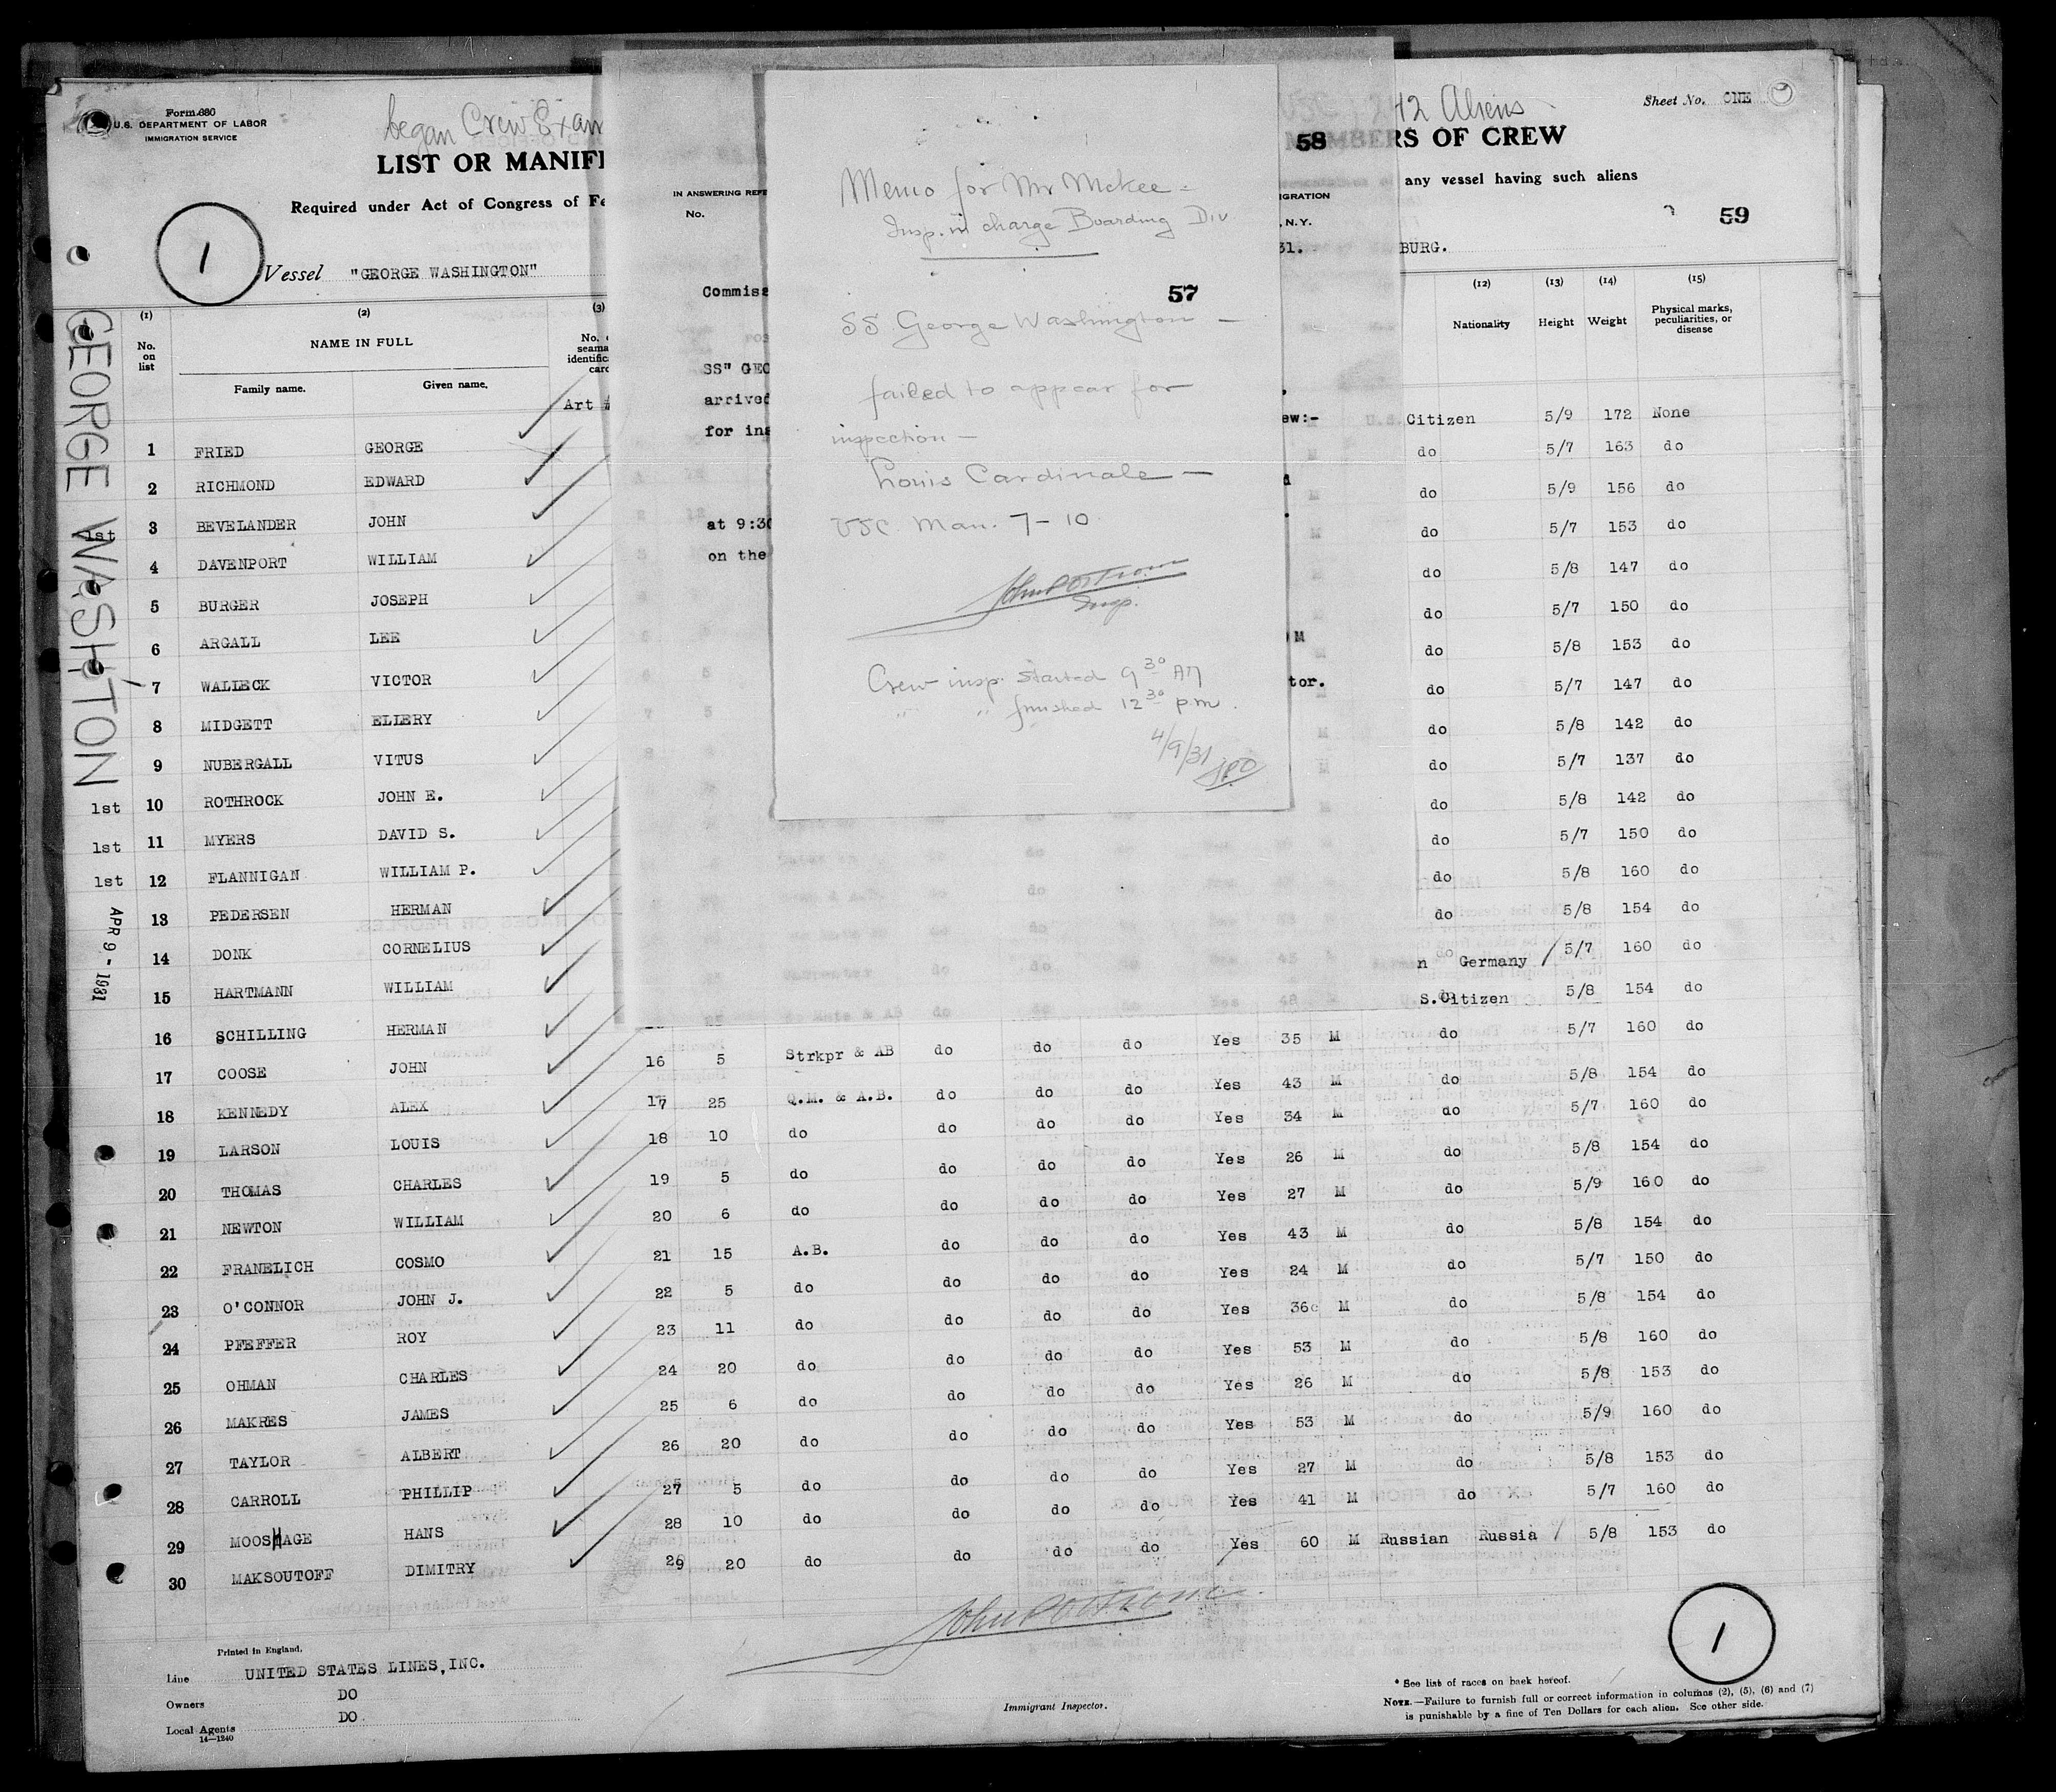 Form 680
U.S. DEPARTMENT OF LABOR
IMMIGRATION SERVICE
began Crew Exam
42 Aliens
Sheet No. ONE
LIST OR MANIF
RS OF CREW
Required under Act of Congress of Fe
any vessel having such aliens
58
59
1
Vessel "GEORGE WASHINGTON"
BURG.
GEORGE WASHINGTON
APR 9 - 1931
IN ANSWERING REFE
No.
IGRATION
, N.Y.
31.
Commiss
SS" GEO
arrived
for ins
ew:-
at 9:30
on the
M
tor.
Memo for Mr McKee =
Insp. in charge Boarding Div
57
SS. George Washington —
failed to appear for
inspection —
Louis Cardinale —
USC Man. 7-10
Insp.
Crew insp. started 9 30 AM
" " finished 12 30 p.m.
4/9/31 JPO
(1) (2) (3) (12) (13) (14) (15)
No. on list
NAME IN FULL
Family name. Given name.
Art #
Nationality Height Weight Physical marks, peculiarities, or disease
1 FRIED GEORGE Citizen 5/9 172 None
2 RICHMOND EDWARD do 5/7 163 do
1st 3 BEVELANDER JOHN do 5/9 156 do
4 DAVENPORT WILLIAM do 5/7 153 do
5 BURGER JOSEPH do 5/8 147 do
6 ARGALL LEE do 5/7 150 do
7 WALLECK VICTOR do 5/8 153 do
8 MIDGETT ELLERY do 5/7 147 do
9 NUBERGALL VITUS do 5/8 142 do
1st 10 ROTHROCK JOHN E. do 5/7 137 do
1st 11 MYERS DAVID S. do 5/8 142 do
1st 12 FLANNIGAN WILLIAM P. do 5/7 150 do
13 PEDERSEN HERMAN do 5/8 160 do
14 DONK CORNELIUS do 5/8 154 do
15 HARTMANN WILLIAM n Germany 5/7 160 do
16 SCHILLING HERMAN S.Citizen 5/8 154 do
17 COOSE JOHN 16 5 Strkpr & AB do do do Yes 35 M do 5/7 160 do
18 KENNEDY ALEX 17 25 Q.M. & A.B. do do do Yes 43 M do 5/8 154 do
19 LARSON LOUIS 18 10 do do do do Yes 34 M do 5/7 160 do
20 THOMAS CHARLES 19 5 do do do do Yes 26 M do 5/8 154 do
21 NEWTON WILLIAM 20 6 do do do do Yes 27 M do 5/9 160 do
22 FRANELICH COSMO 21 15 A.B. do do do Yes 43 M do 5/8 154 do
23 O'CONNOR JOHN J. 22 5 do do do do Yes 24 M do 5/7 150 do
24 PFEFFER ROY 23 11 do do do do Yes 36 M do 5/8 154 do
25 OHMAN CHARLES 24 20 do do do do Yes 53 M do 5/8 160 do
26 MAKRES JAMES 25 6 do do do do Yes 26 M do 5/8 153 do
27 TAYLOR ALBERT 26 20 do do do do Yes 53 M do 5/9 160 do
28 CARROLL PHILLIP 27 5 do do do do Yes 27 M do 5/8 153 do
29 MOOSHAGE HANS 28 10 do do do do Yes 41 M do 5/7 160 do
30 MAKSOUTOFF DIMITRY 29 20 do do do do Yes 60 M Russian Russia 5/8 153 do
Printed in England.
Line UNITED STATES LINES, INC.
Owners DO
Local Agents DO
14—1240
Immigrant Inspector.
1
* See list of races on back hereof.
NOTE.—Failure to furnish full or correct information in columns (2), (5), (6) and (7)
is punishable by a fine of Ten Dollars for each alien. See other side.